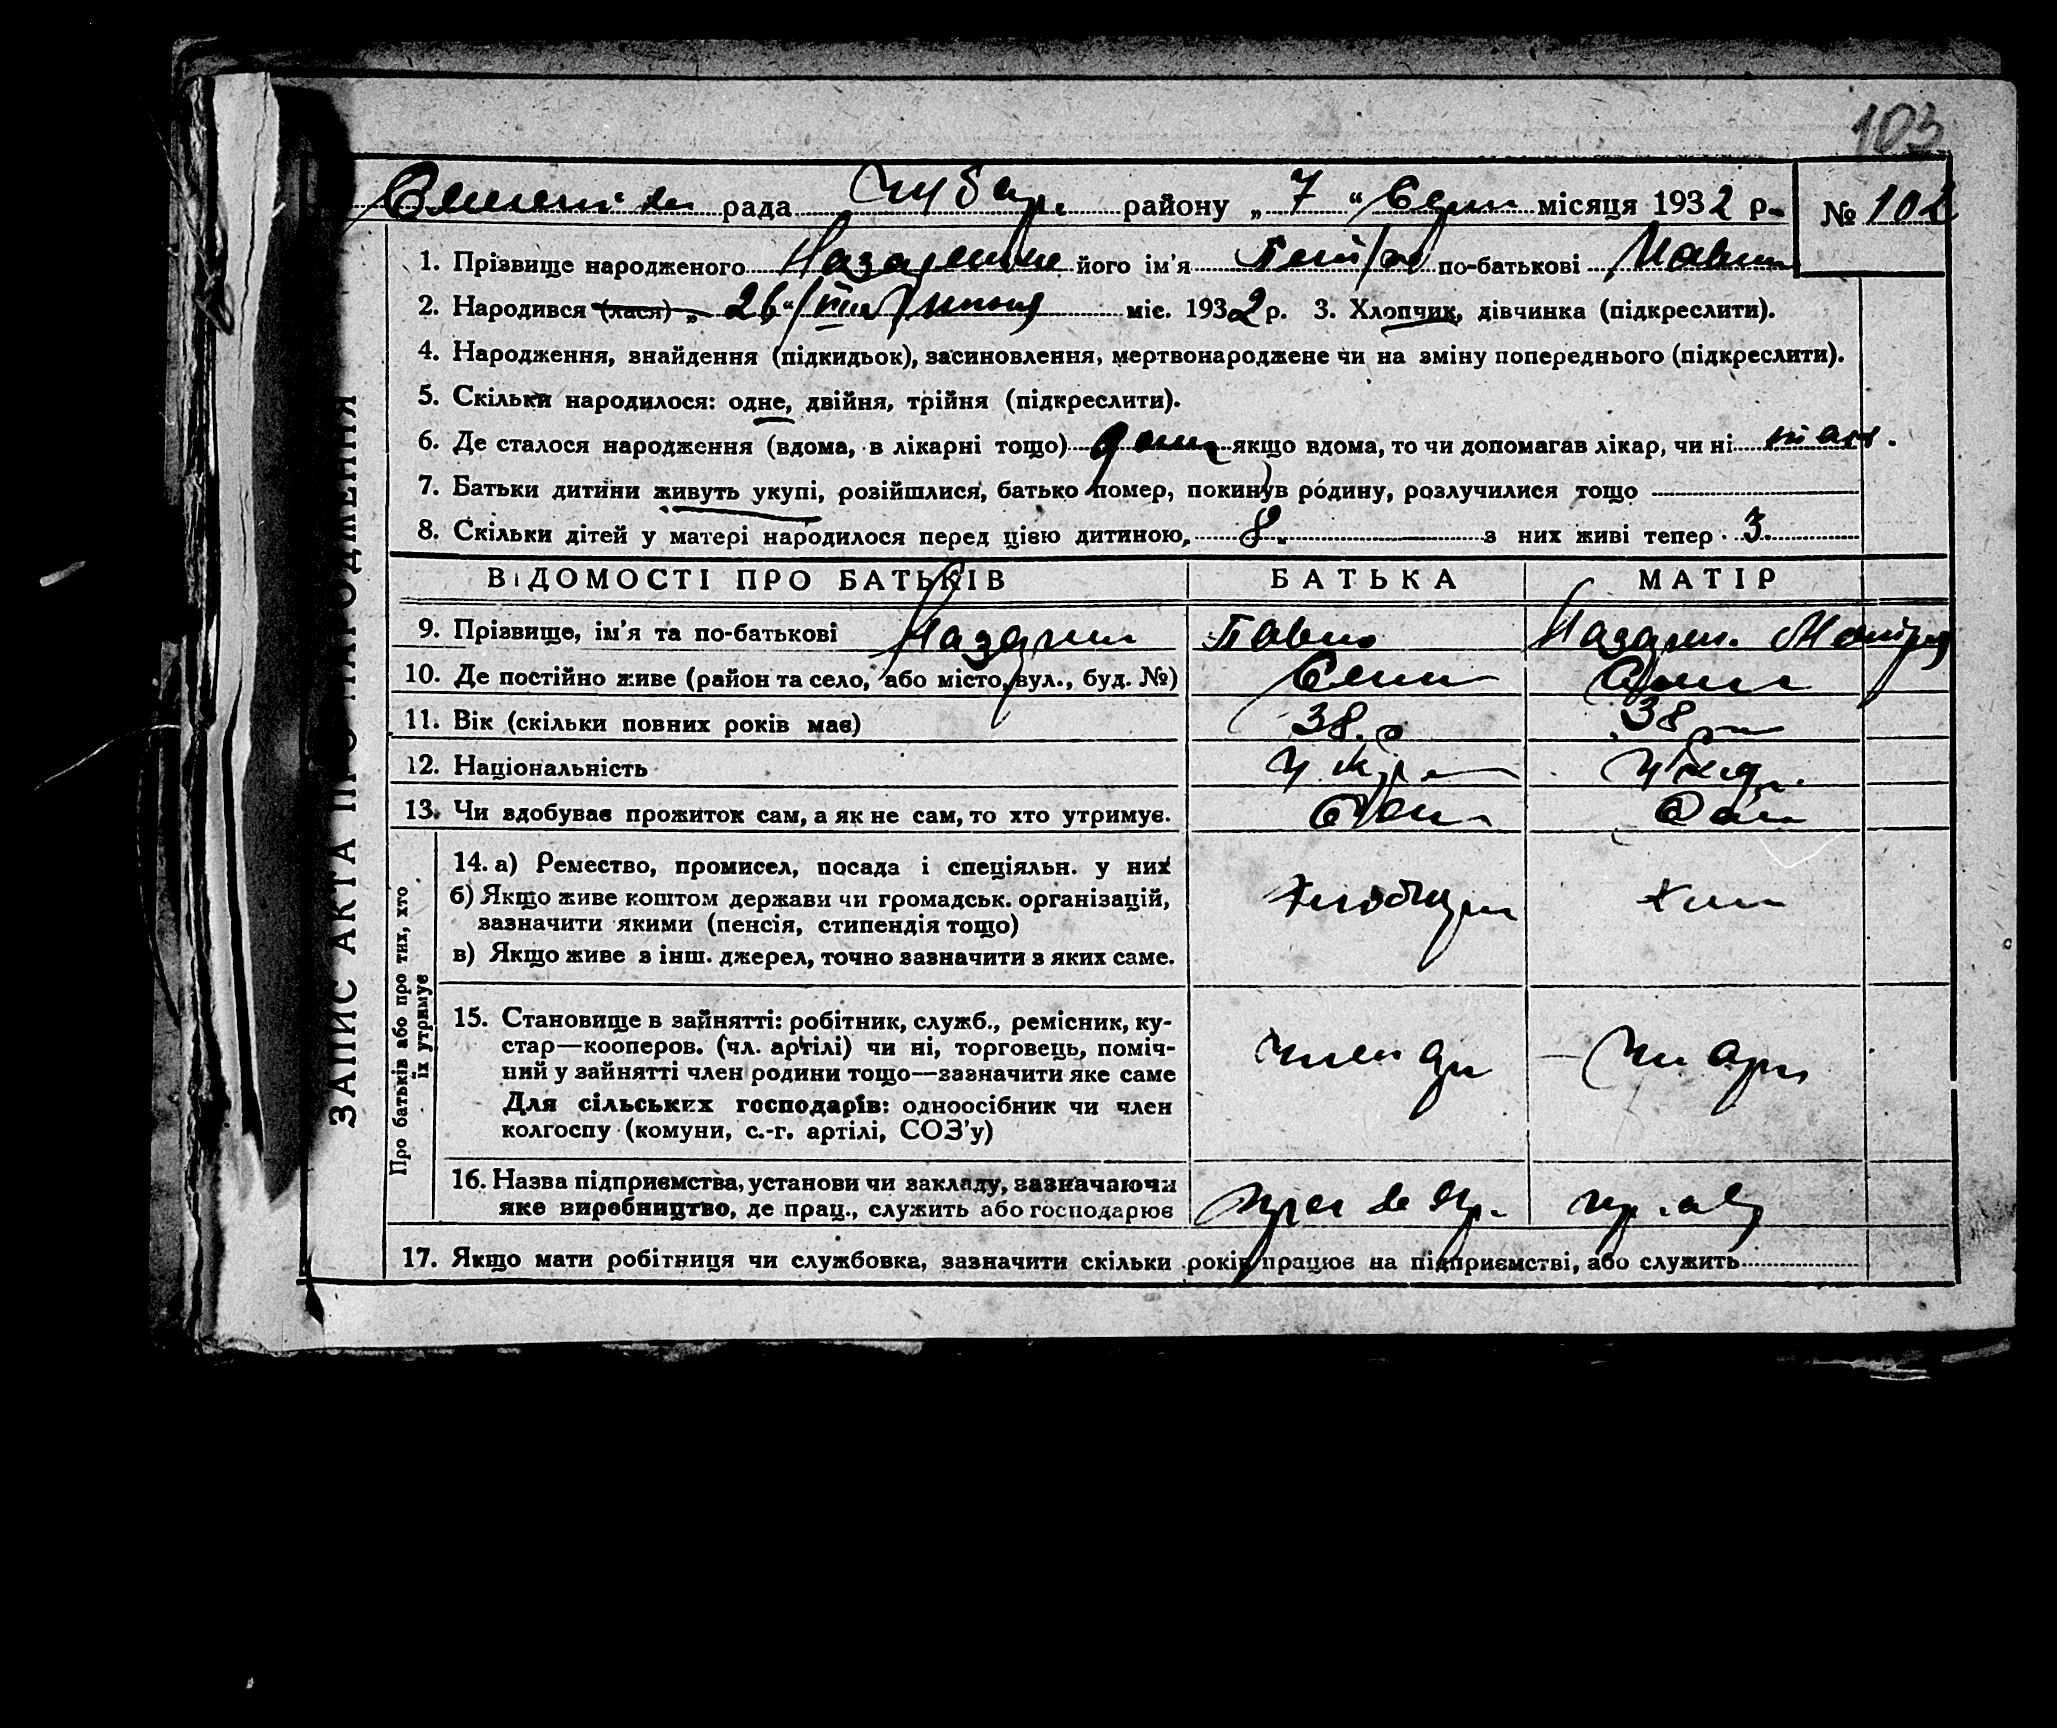 103
рада Чубар. району „ 7 “ Серп місяця 1932 р. № 102
1. Прізвище народженого його ім'я Петро по-батькові Павлов
2. Народився (лася) „ 26 “ міс. 1932 р. 3. Хлопчик, дівчинка (підкреслити).
4. Народження, знайдення (підкидьок), засиновлення, мертвонароджене чи на зміну попереднього (підкреслити).
5. Скільки народилося: одне, двійня, трійня (підкреслити).
6. Де сталося народження (вдома, в лікарні тощо) дома якщо вдома, то чи допомагав лікар, чи ні
7. Батьки дитини живуть укупі, розійшлися, батько помер, покинув родину, розлучилися тощо
8. Скільки дітей у матері народилося перед цією дитиною, 8. з них живі тепер 3.
ВІДОМОСТІ ПРО БАТЬКІВ БАТЬКА МАТІР
9. Прізвище, ім'я та по-батькові Павло
10. Де постійно живе (район та село, або місто, вул., буд. №)
11. Вік (скільки повних років має) 38. 38
12. Національність Укр. Укр.
13. Чи здобуває прожиток сам, а як не сам, то хто утримує. Сам Сам
14. а) Ремество, промисел, посада і спеціяльн. у них
б) Якщо живе коштом держави чи громадськ. організацій,
зазначити якими (пенсія, стипендія тощо)
в) Якщо живе з інш. джерел, точно зазначити з яких саме.
15. Становище в зайнятті: робітник, служб., ремісник, ку-
стар—кооперов. (чл. артілі) чи ні, торговець, поміч-
ний у зайнятті член родини тощо—зазначити яке саме
Для сільських господарів: одноосібник чи член
колгоспу (комуни, с.-г. артілі, СОЗ'у)
16. Назва підприємства, установи чи закладу, зазначаючи
яке виробництво, де прац., служить або господарює
17. Якщо мати робітниця чи службовка, зазначити скільки років працює на підприємстві, або служить
Про батьків або про тих, хто
їх утримує
ЗАПИС АКТА ПРО НАРОДЖЕННЯ